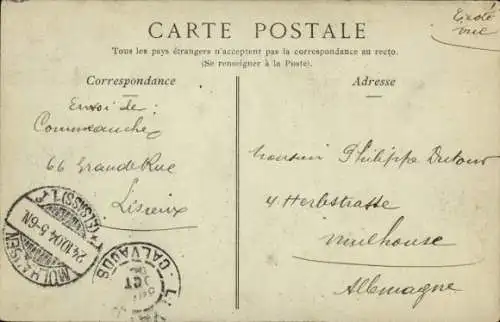 CARTE POSTALE
Tous les pays étrangers n'acceptent pas la correspondance au recto.
(Se renseigner à la Poste).
Correspondance
Adresse
Envoi de :
66 Grande Rue
Lisieux
Monsieur Philippe
4 Herbstrasse
Mulhouse
Allemagne
MÜLHAUSEN
24.10.04. 5-6N
(ELSASS) 1
CALVADOS
OCT